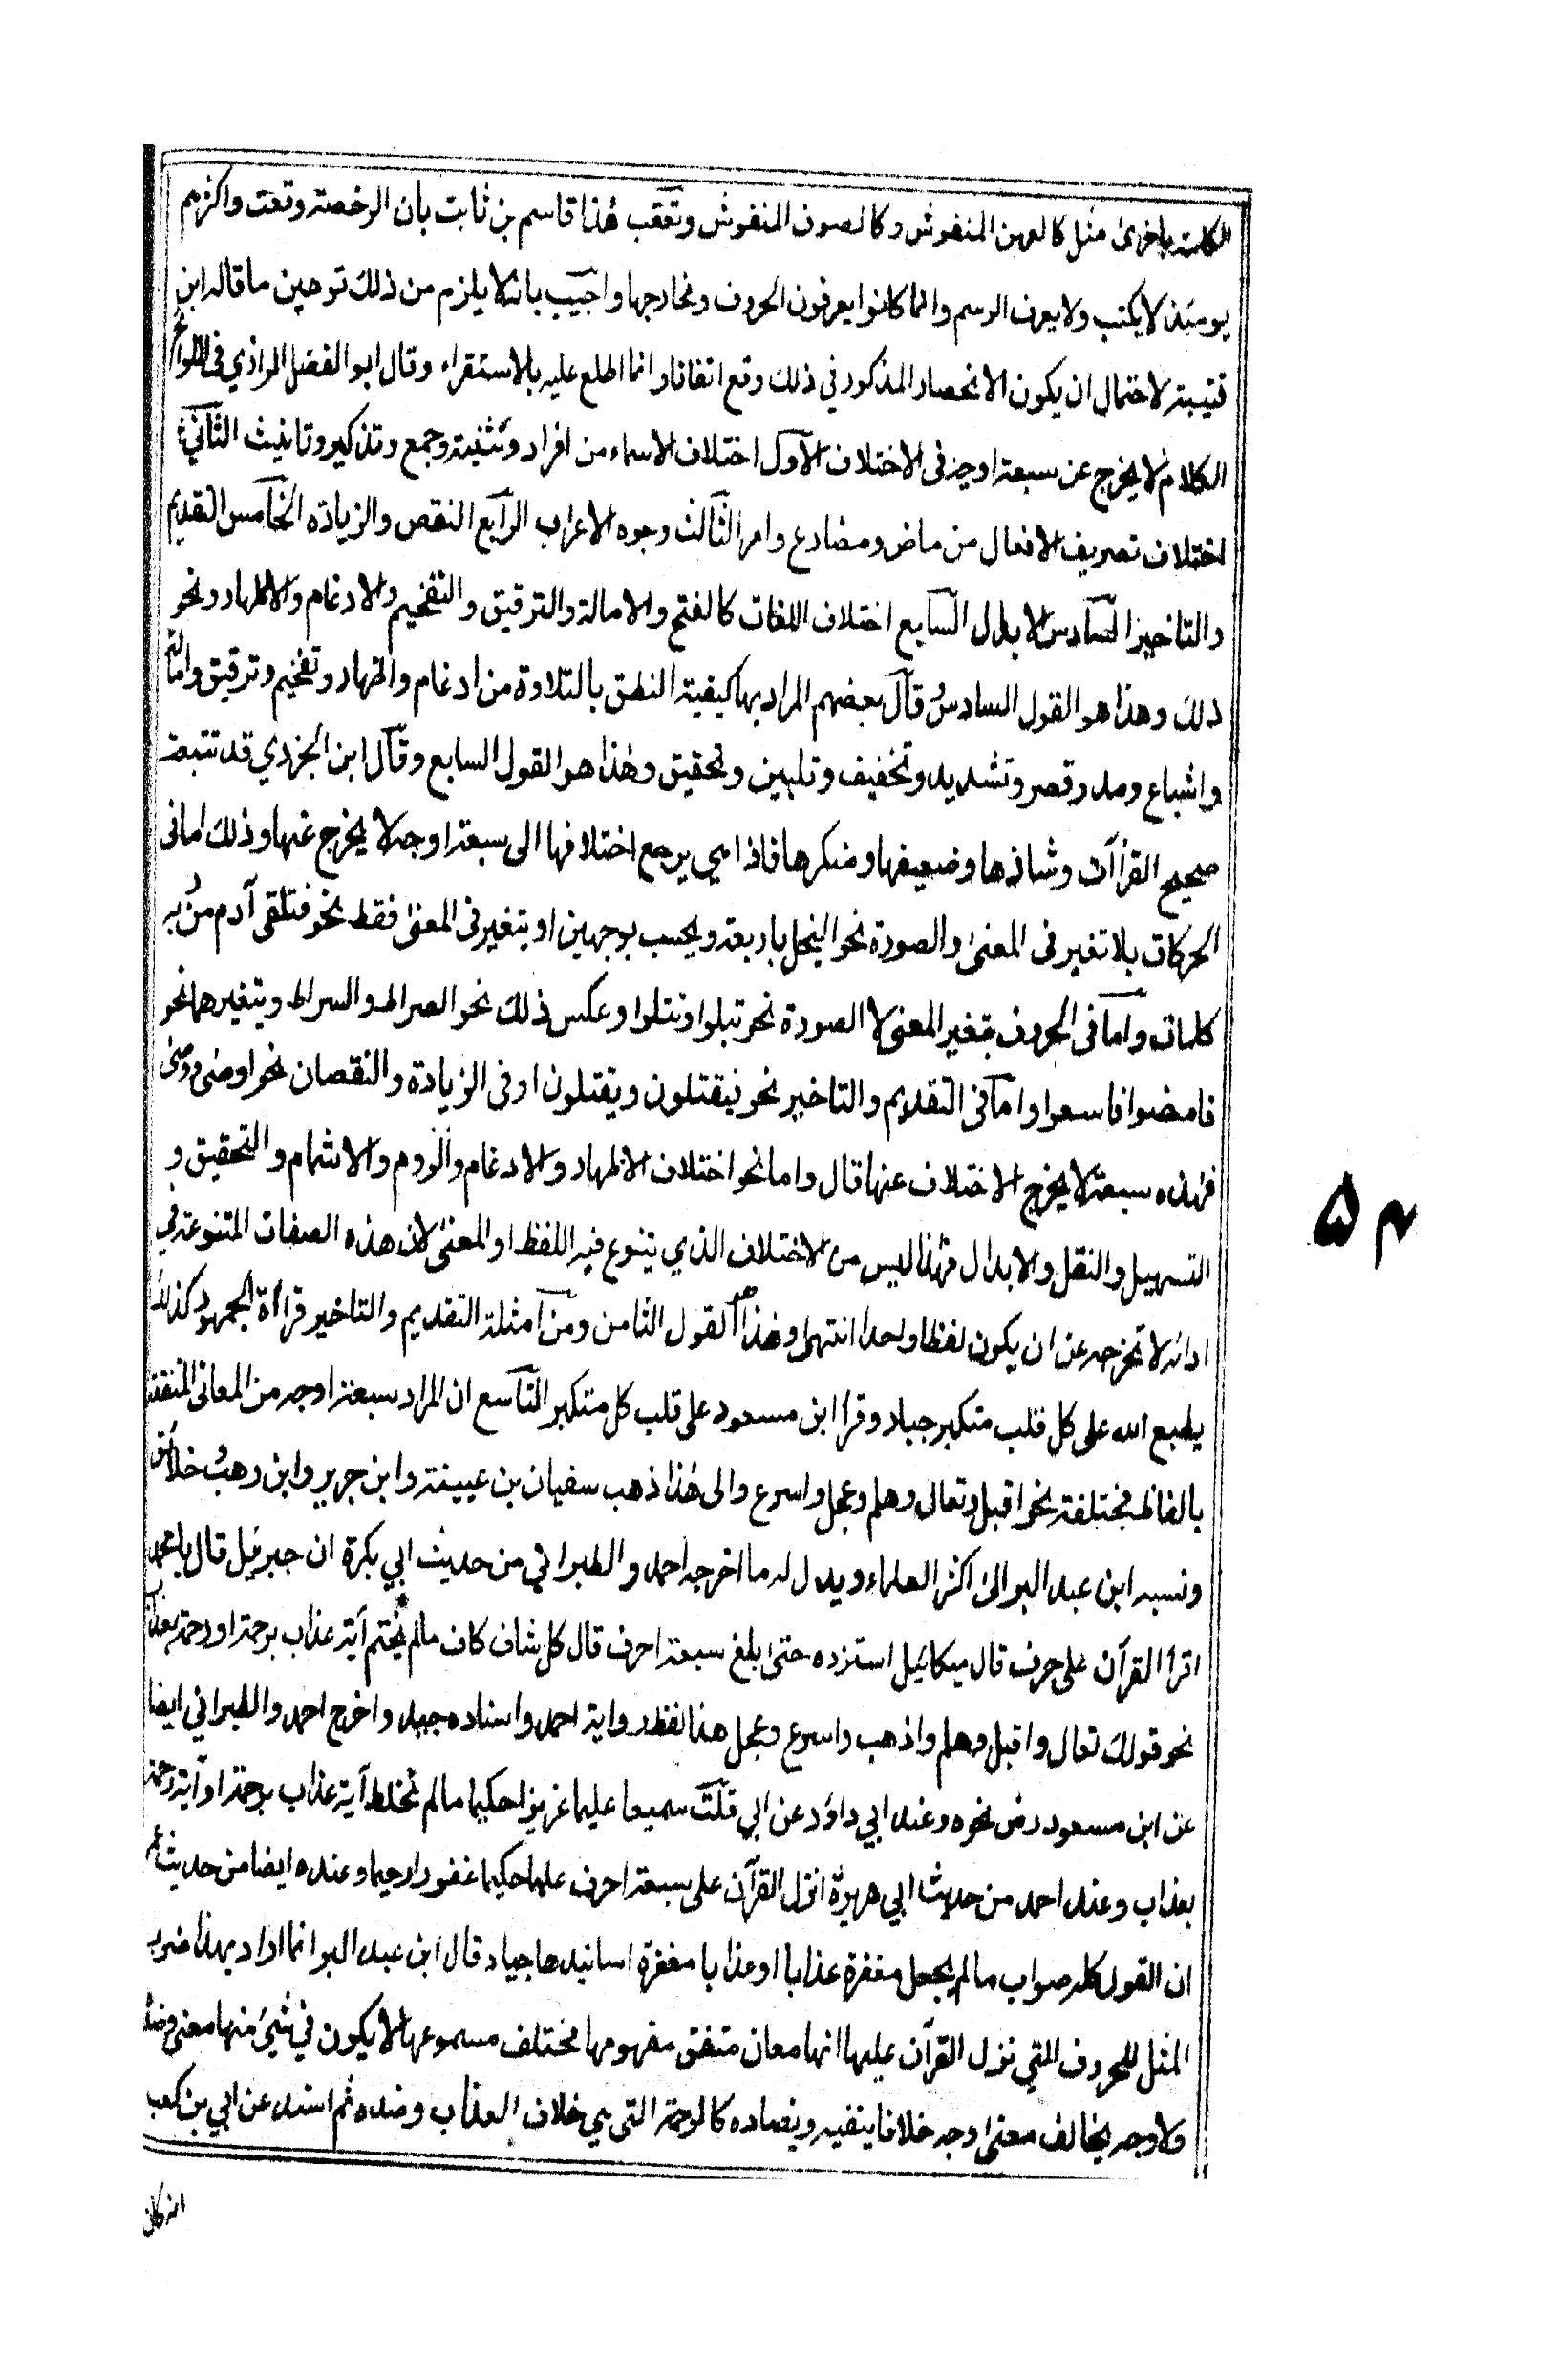 الكلمة باخرى مثل كالعهن المنفوش وكالصوف المنفوش وتعقب هذا قاسم بن ثابت بأن الرخصة وقعت واكثرهم
يومئذ لا يكتب ولا يعرف الرسم وانما كانوا يعرفون الحروف ومخارجها واجيب بانه لا يلزم من ذلك توهين ما قاله ابن
قتيبة لاحتمال ان يكون الانحصار المذكور في ذلك وقع اتفاقا وانما اطلع عليه بالاستقراء وقال ابو الفضل الرازي فى اللوائح
الكلام لا يخرج عن سبعة اوجه فى الاختلاف الاول اختلاف الاسماء من افراد وتثنية وجمع وتذكير وتانيث الثاني
اختلاف تصريف الافعال من ماض ومضارع وامر الثالث وجوه الاعراب الرابع النقص والزيادة الخامس التقديم
والتاخير السادس الابدال السابع اختلاف اللغات كالفتح والامالة والترقيق والتفخيم والادغام والاظهار ونحو
ذلك وهذا هو القول السادس قال بعضهم المراد بها كيفية النطق بالتلاوة من ادغام واظهار وتفخيم وترقيق وامالة
واشباع ومد وقصر وتشديد وتخفيف وتليين وتحقيق وهذا هو القول السابع وقال ابن الجزري قد تتبعت
صحيح القراآت وشاذها وضعيفها ومنكرها فاذا هي يرجع اختلافها الى سبعة اوجه لا يخرج عنها وذلك اما فى
الحركات بلا تغير فى المعنى والصورة نحو البخل باربعة ويحسب بوجهين او بتغير فى المعنى فقط نحو فتلقى آدم من ربه
كلمات واما فى الحروف بتغير المعنى لا الصورة نحو تبلوا وتتلوا وعكس ذلك نحو الصراط والسراط وبتغيرهما نحو
فامضوا فاسعوا واما فى التقديم والتاخير نحو فيقتلون ويقتلون او فى الزيادة والنقصان نحو اوصى ووصى
فهذه سبعة لا يخرج الاختلاف عنها قال واما نحو اختلاف الاظهار والادغام والروم والاشمام والتحقيق و
التسهيل والنقل والابدال فهذا ليس من الاختلاف الذي يتنوع فيه اللفظ او المعنى لان هذه الصفات المتنوعة في
ادائه لا تخرجه عن ان يكون لفظا واحدا انتهى وهذا هو القول الثامن ومن امثلة التقديم والتاخير قراأة الجمهور كذلك
يطبع الله على كل قلب متكبر جبار وقرأ ابن مسعود على قلب كل متكبر التاسع ان المراد سبعة اوجه من المعانى المتفقة
بالفاظ مختلفة نحو اقبل وتعال وهلم وعجل واسرع والى هذا ذهب سفيان بن عيينة وابن جرير وابن وهب وخلائق
ونسبه ابن عبد البر الى اكثر العلماء ويدل له ما اخرجه احمد والطبراني من حديث ابي بكرة ان جبرئيل قال يا محمد
اقرأ القرآن على حرف قال ميكائيل استزده حتى بلغ سبعة احرف قال كل شاف كاف ما لم يختم آية عذاب برحمة او رحمة بعذاب
نحو قولك تعال واقبل وهلم واذهب واسرع وعجل هذا لفظ رواية احمد واسناده جيد واخرج احمد والطبراني ايضا
عن ابن مسعود رض نحوه وعند ابي داؤد عن ابي قلت سميعا عليما عزيزا حكيما ما لم تخلط آية عذاب برحمة او آية رحمة
بعذاب وعند احمد من حديث ابي هريرة انزل القرآن على سبعة احرف عليما حكيما غفورا رحيما وعنده ايضا من حديث عمر
ان القول كله صواب ما لم يجعل مغفرة عذابا او عذابا مغفرة اسانيدها جياد قال ابن عبد البر انما اراد بهذا ضرب
المثل للحروف التي نزل القرآن عليها انها معان متفق مفهومها مختلف مسموعها لا يكون في شيئ منها معنى وضده
ولا وجه يخالف معنى وجه خلافا ينفيه ويضاده كالرحمة التى هي خلاف العذاب وضده ثم اسند عن ابي بن كعب
انه كان
۵م